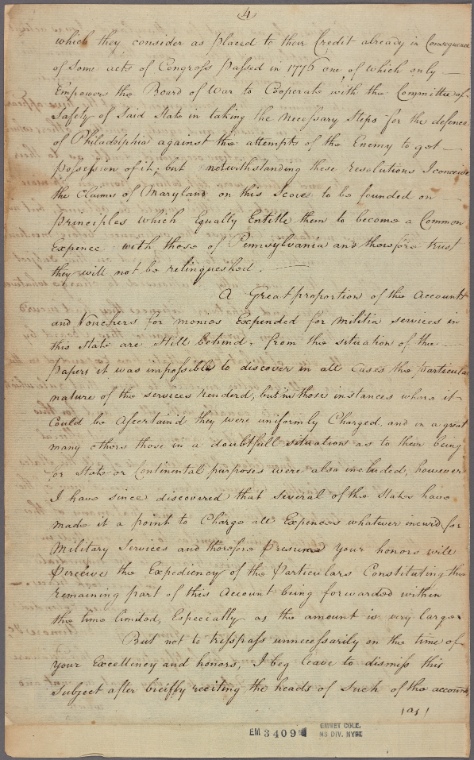 (4)
which they consider as placed to their Credit already in Consequence
of Some acts of Congress passed in 1776 one of which only
Empowers the Board of War to Cooperate with the Committee of
Safety of Said State in taking the necessary Steps for the defence
of Philadelphia against the attempts of the Enemy to get
possession of it; but notwithstanding these resolutions I conceive
the Claims of Maryland on this Score to be founded on
principles which Equally Entitle them to become a Common
Expence with those of Pennsylvania and therefore trust
they will not be relinqueshed.
A Great proportion of the Accounts
and Vouchers for monies Expended for militia services in
this State are Still behind. from the situation of the
papers it was impossible to discover in all Cases the particular
nature of the services rendered, but in those instances where it
Could be Ascertain'd they were uniformly Charged, and in a great
many others those in a doubtfull situation as to their being
for State or Continental purposes were also included, however
I have since discovered that several of the States have
made it a point to Charge all Expences whatever incured for
Military Services and therefore presume your honors will
perceive the Expediency of the Particulars Constituting the
remaining part of this Account being forwarded within
the time limited, Especially as the amount is very large
But not to trespass unnecessarily on the time of
your Excellency and honors, I beg leave to dismiss this
Subject after briefly reciting the heads of Such of the accounts
as
EM 3409
EMMET COLL.
MS DIV. NYPL